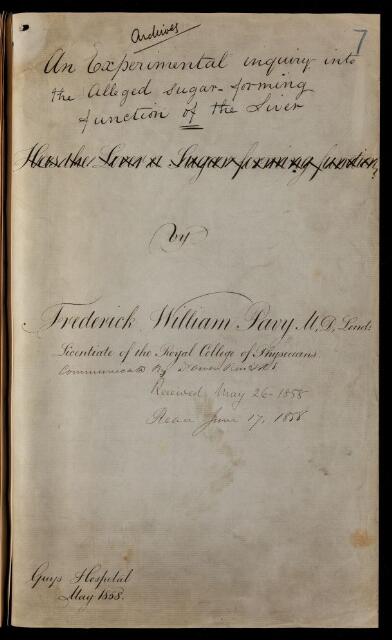 Archives
7
An Experimental inquiry into
the Alleged sugar-forming
function of the Liver
Has the Liver a Sugar forming function?
by
Frederick William Pavy M,D, Lond:
Licentiate of the Royal College of Physicians.
Communicated by
Received May 26 - 1858
Read June 17, 1858
Guys Hospital
May 1858.